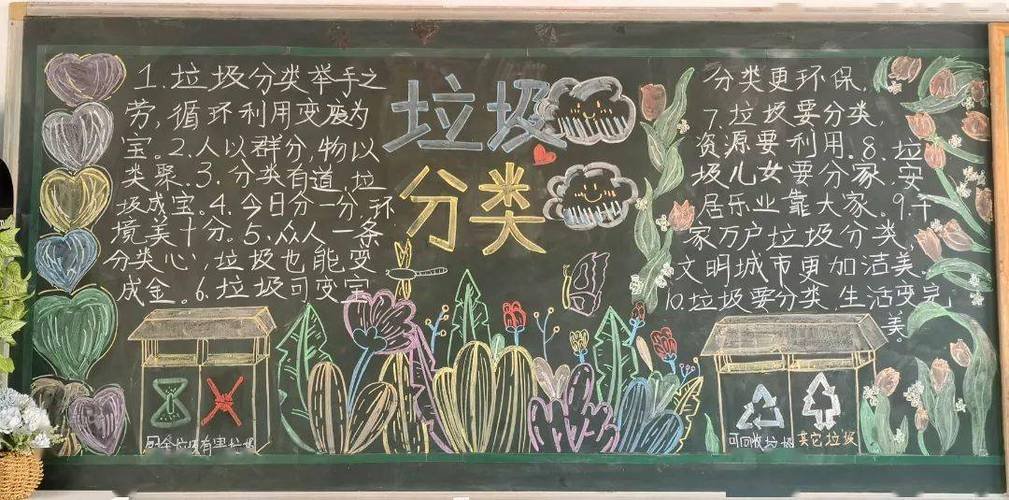 垃圾
分类
1.垃圾分类举手之
劳,循环利用变废为
宝。2.人以群分,物以
类聚.3.分类有道,垃
圾成宝。4.今日分一分,环
境美十分。5.众人一条
分类心,垃圾也能变
成金。6.垃圾可变宝
分类更环保,
7.垃圾要分类,
资源要利用.8.垃
圾儿女要分家,安
居乐业靠大家。9.千
家万户垃圾分类,
文明城市更加洁美.
10.垃圾要分类,生活变完
美。
厨余垃圾 有害垃圾
可回收垃圾 其它垃圾